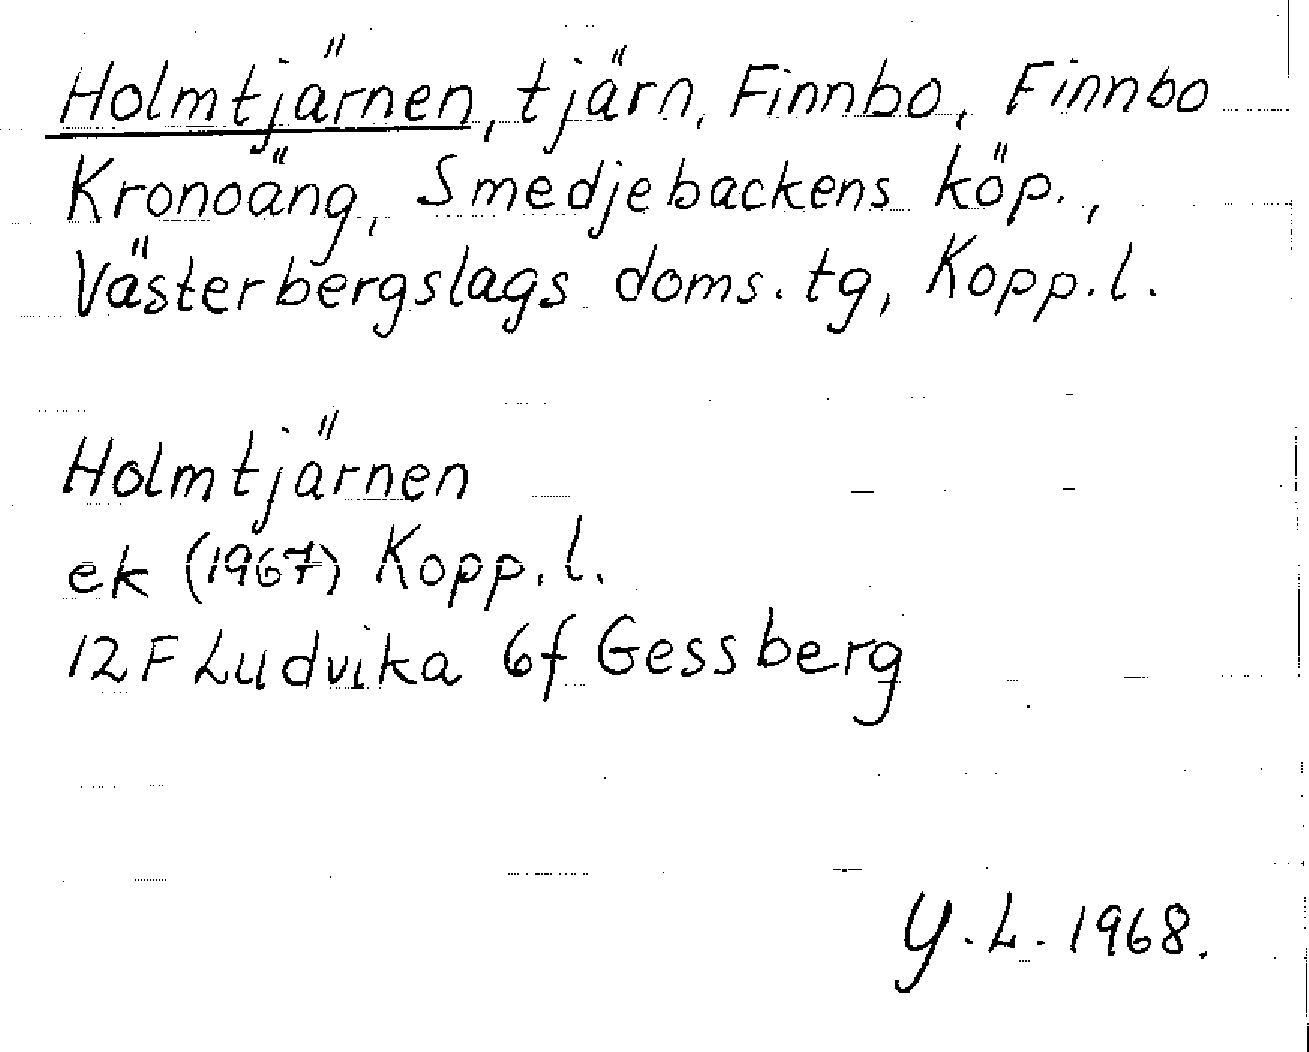 Holmtjärnen, tjärn, Finnbo, Finnbo
Kronoäng, Smedjebackens köp.,
Västerbergslags doms.tg, Kopp.l.
Holmtjärnen
ek (1967) Kopp.l.
12F Ludvika 6f Gessberg
Y.L. 1968.